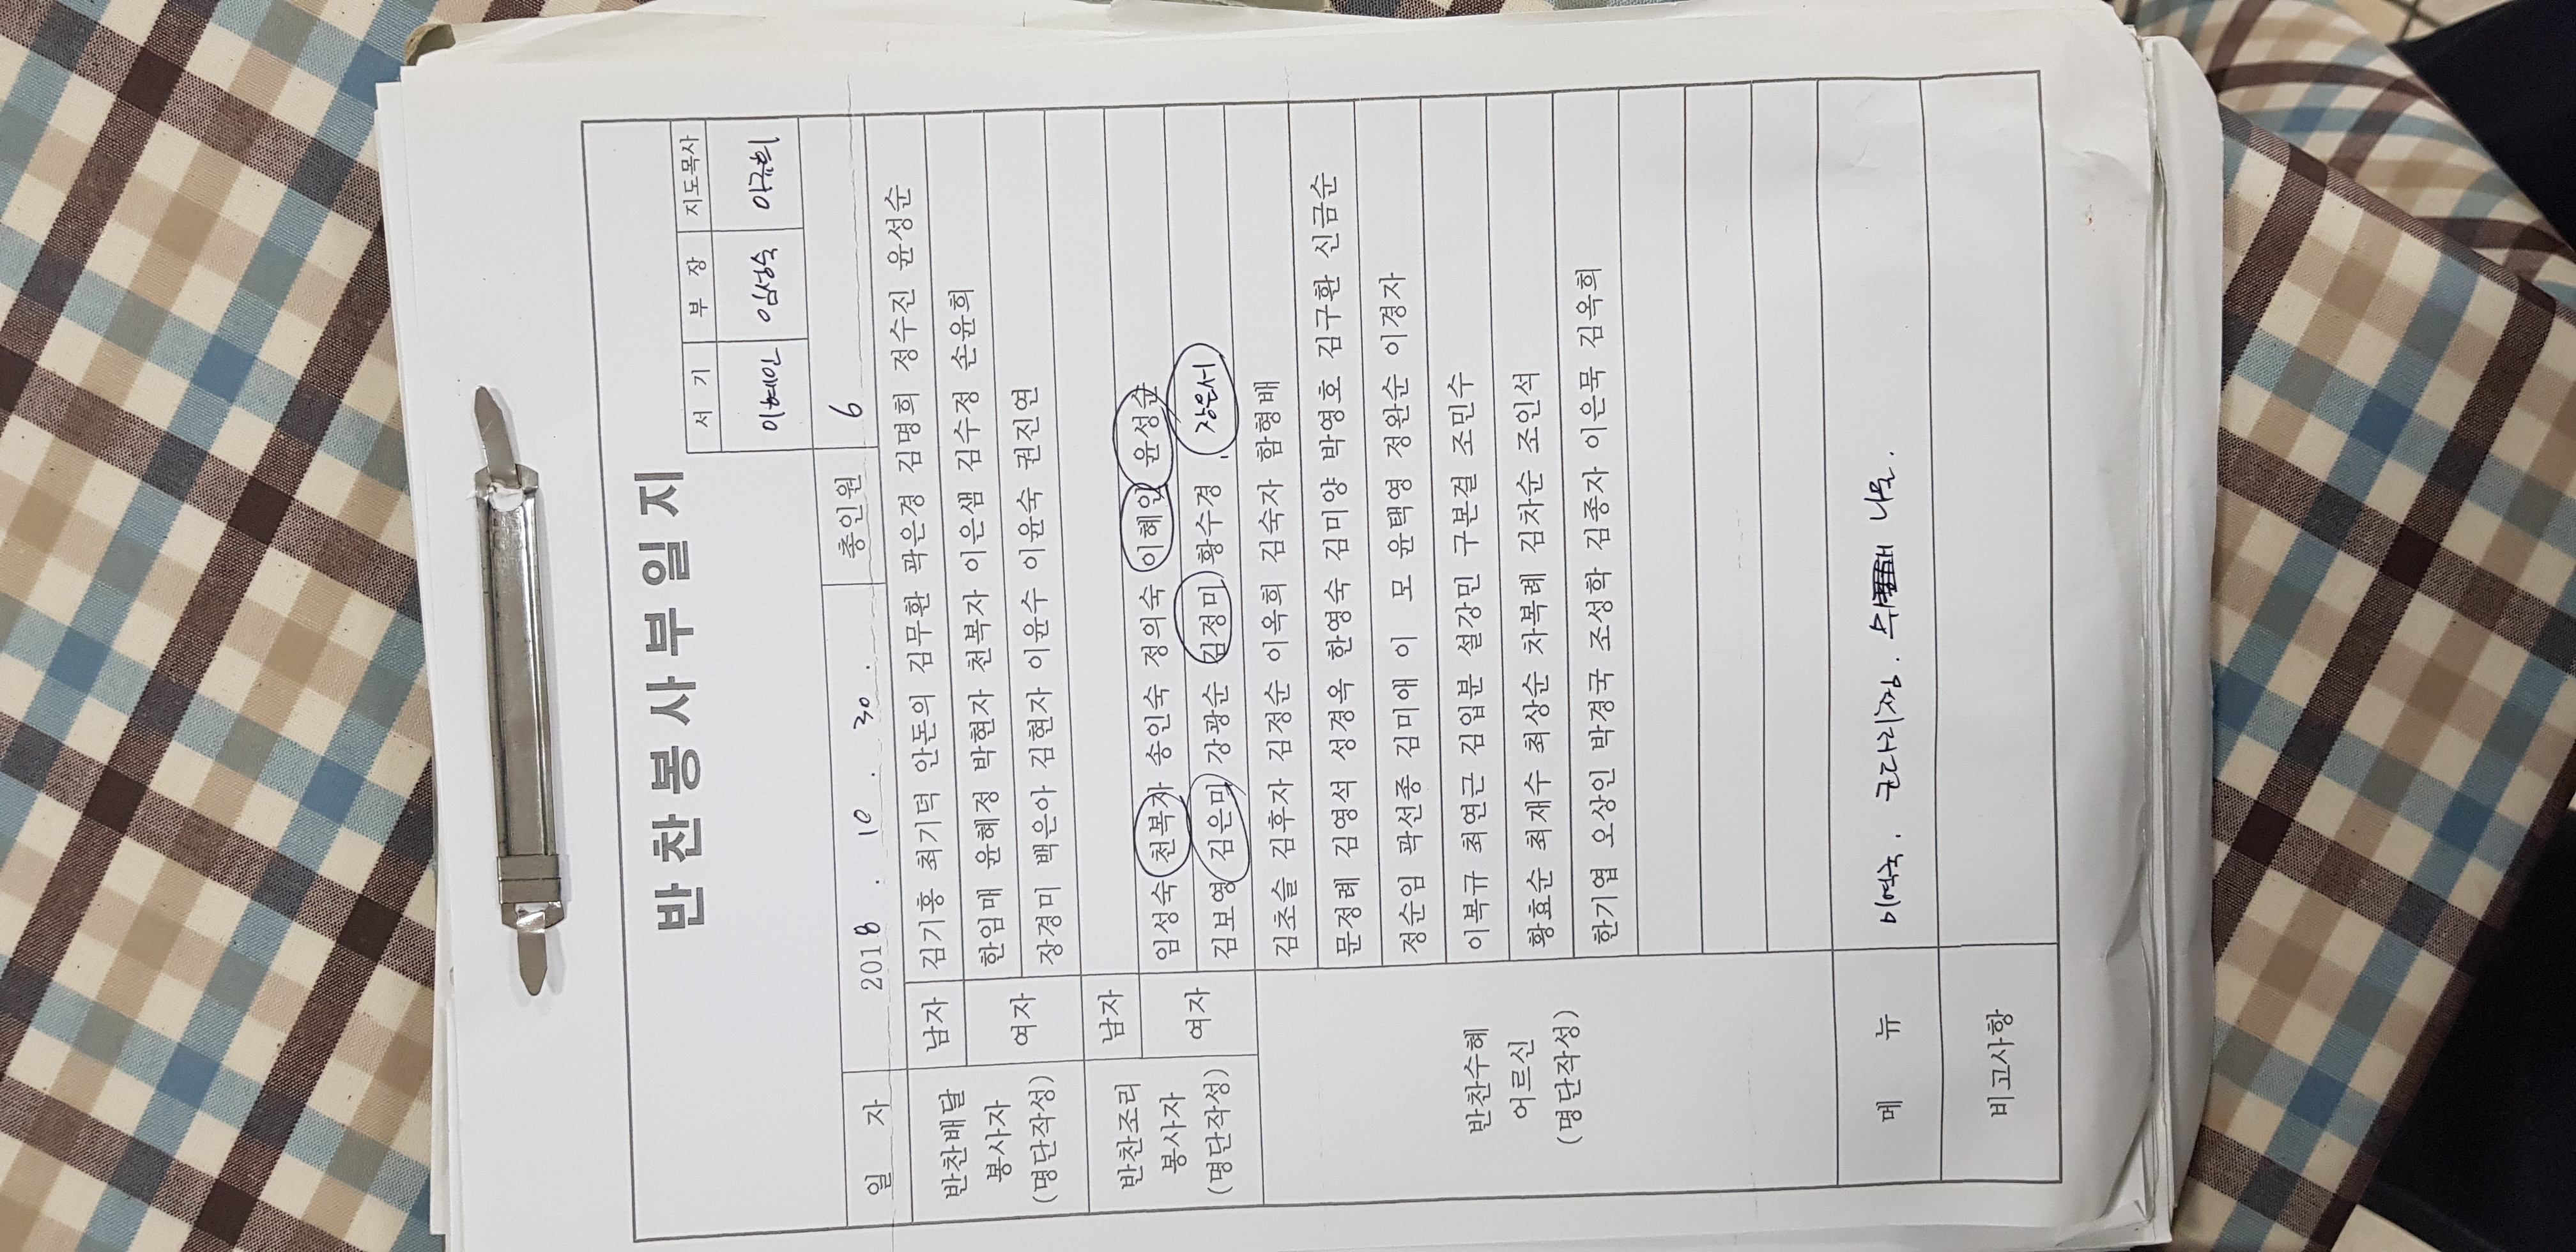 반찬봉사부일지
서 기 부 장 지도목사
이혜인 임성숙
일 자 2018 . 10 . 30 . 총인원 6
반찬배달
봉사자
(명단작성)
남자 김기홍 최기덕 안돈의 김무환 곽은경 김명희 정수진 윤성순
여자 한임매 윤혜정 박현자 천복자 이은샘 김수정 손윤희
장경미 백은아 김현자 이윤수 이윤숙 권진연
반찬조리
봉사자
(명단작성)
남자
여자 임성숙 천복자 송인숙 정의숙 이혜인 윤성순
김보영 김은미 강광순 김정미 황수경 . 장은서
반찬수혜
어르신
(명단작성)
김초슬 김후자 김정순 이옥희 김숙자 함형배
문정례 김영석 성경옥 한영숙 김미양 박영호 김구환 신금순
정순임 곽선종 김미애 이 모 윤택영 정완순 이경자
이복규 최연근 김입분 설강민 구본걸 조민수
황효순 최재수 최상순 차복례 김차순 조인석
한기엽 오상인 박경국 조성학 김종자 이은묵 김옥희
메 뉴 미역국. 코다리찜. 나물.
비고사항